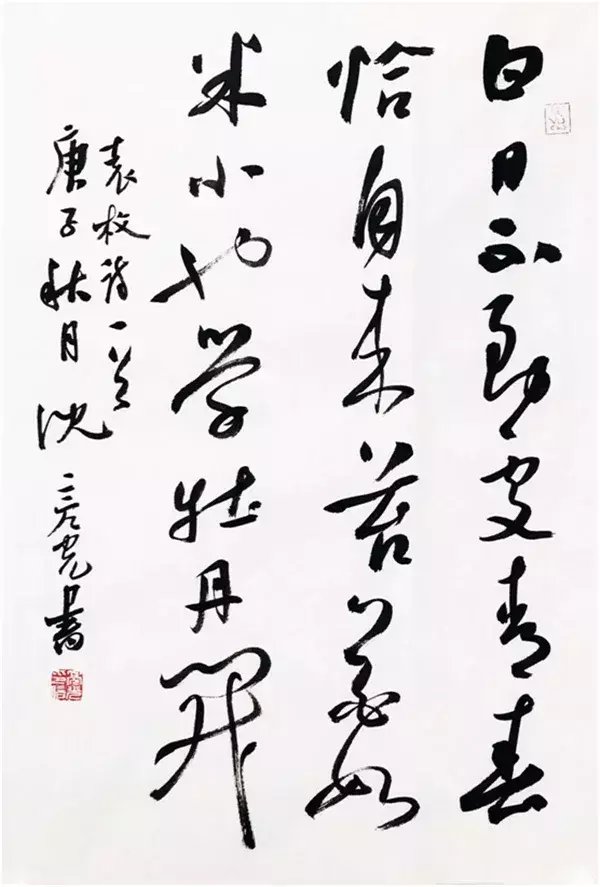 白日不到处青春
恰自来苔花如
米小也学牡丹開
袁枚诗一首
庚子秋月沈書